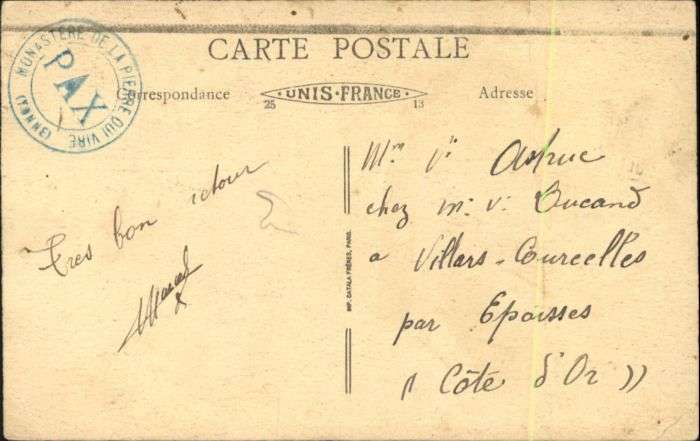 CARTE POSTALE
MONASTÈRE DE LA PIERRE QUI VIRE (YONNE)
PAX
Correspondance
25 UNIS-FRANCE 13
Adresse
Tres bon retour
Marcel
IMP. CATALA FRÈRES, PARIS.
Astruc
chez Mr V. Bucand
a Villars-Courcelles
par Epoisses
(( Côte d'Or ))